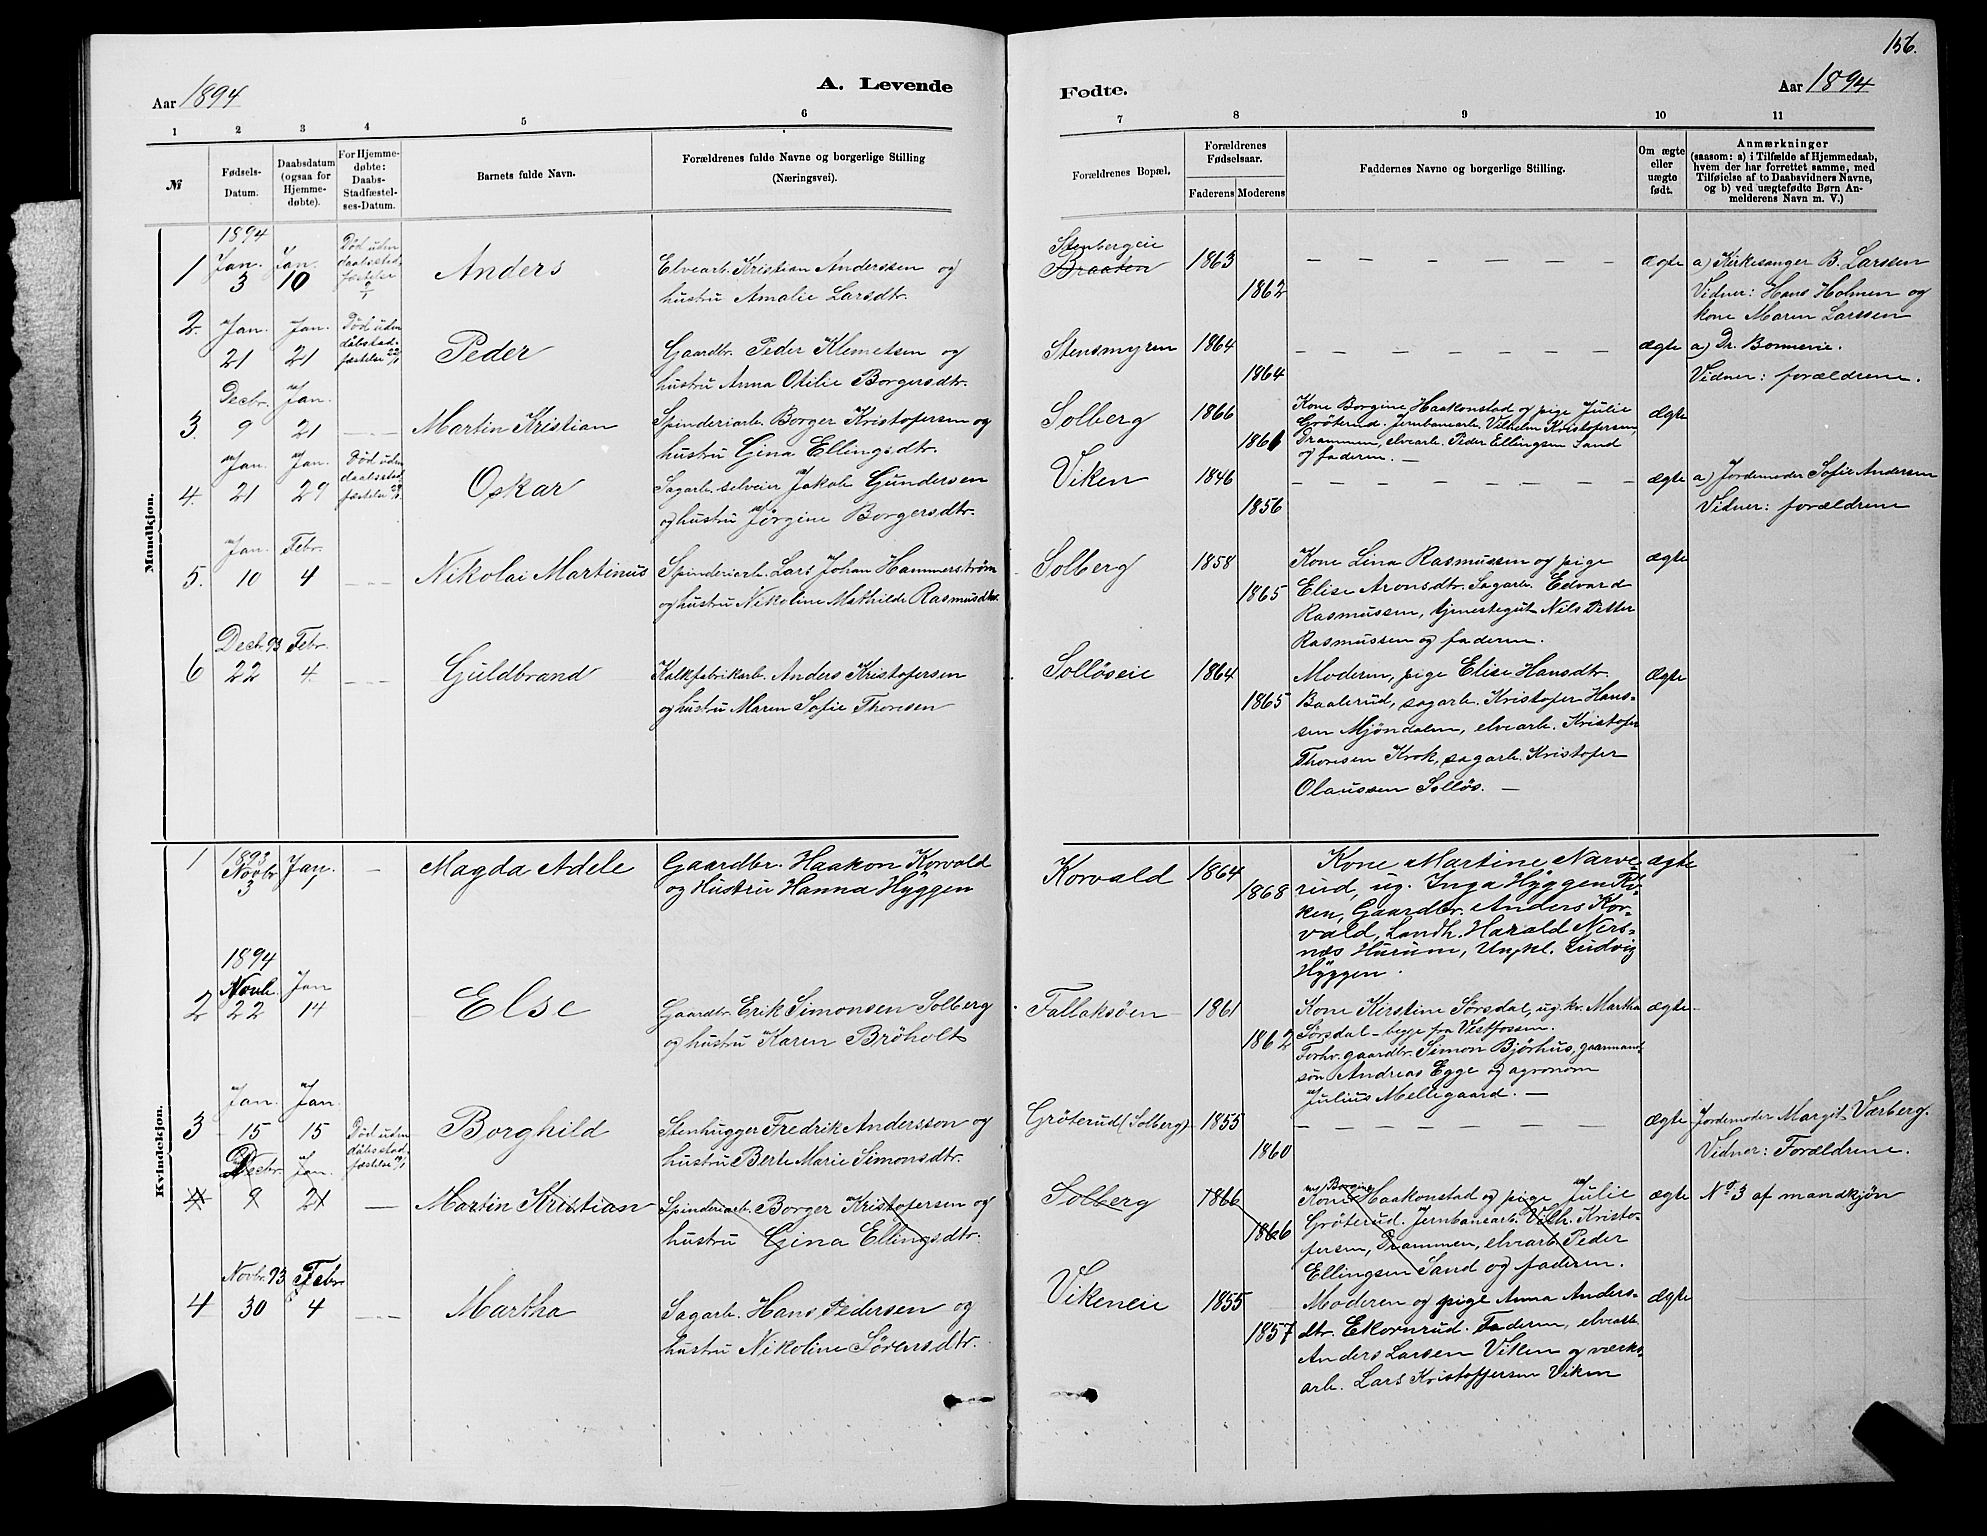 156.
Aar 1894
A. Levende
Fødte.
Aar 1894
1 2 3 4 5 6 7 8 9 10 11
№
Fødsels-
Datum.
Daabsdatum
(ogsaa for
Hjemme-
døbte).
For Hjemme-
døbte:
Daabs-
Stadfæstel-
ses-Datum.
Barnets fulde Navn.
Forældrenes fulde Navne og borgerlige Stilling
(Næringsvei).
Forældrenes Bopæl.
Forældrenes
Fødselsaar.
Faderens Moderens
Faddernes Navne og borgerlige Stilling.
Om ægte
eller
uægte
født.
Anmærkninger
(saasom: a) i Tilfælde af Hjemmedaab,
hvem der har forrettet samme, med
Tilføielse af to Daabsvidners Navne,
og b) ved uægtefødte Børn An-
melderens Navn m. V.)
Mandkjøn.
1894
1
Jan.
3
Jan.
10
Død uden
daabsstad-
fæstelse
Anders
Elvearb. Kristian Anderssen og
hustru Amalie Larsdtr.
Stenbergeie
Braaten
1863
1862
— — — — — — —
ægte
a) Kirkesanger B. Larssen
Vidner: Hans Holmen og
kone Maren Larssen
2.
Jan.
21
Jan.
21
Død uden
dåbsstad-
fæstelse 22/1
Peder
Gaardbr. Peder Klemetsen og
hustru Anna Otilie Borgersdtr.
Stensmyren
1864
1864
— — — — — — —
ægte
a) Dr. Bonnevie.
Vidner: forældrene.
3.
Decbr.
9
Jan.
21
Martin Kristian
Spinderiarb. Borger Kristofersen og
hustru Gina Ellingsdtr.
Solberg
1866
1866
Kone Borgine Haakonstad og pige Julie
Gröterud. Jernbanearb. Vilhelm Kristofersen,
Drammen, elvearb. Peder Ellingsen Sand
og faderen. —
ægte
4.
Jan.
21
Jan.
29
Død uden
daabsstad-
fæstelse
Oskar
Sagarb. selveier Jakob Gundersen
og hustru Jørgine Borgersdtr.
Viken
1846
1856
— — — — — — —
ægte
a) Jordemoder Sofie Andersen
Vidner: forældrene
5.
Jan.
10
Febr.
4
Nikolai Martinus
Spinderiarb. Lars Johan Hammerstrøm
og hustru Nikoline Mathilde Rasmusdtr.
Solberg
1858
1865
Kone Lina Rasmussen og pige
Elise Aronsdtr. Sagarb. Edvard
Rasmussen, tjenestegut Nils Petter
Rasmussen og faderen.
ægte
6
Decbr. 93
22
Febr.
4.
Guldbrand
Kalkfabrikarb. Anders Kristofersen
og hustru Maren Sofie Thoresen
Solløseie
1864
1865
Moderen, pige Elise Hansdtr.
Baalerud, sagarb. Kristofer Hans-
sen Mjöndalen, elvearb. Kristofer
Thoresen Krok, sagarb. Kristofer
Olaussen Solløs. —
Ægte
Kvindekjøn.
1
1893
Novbr
3
Jan.
1
Magda Adele
Gaardbr. Haakon Korvald
og Hustru Hanna Hyggen
Korvald
1864
1868
Kone Martine Narve-
rud, ug. Inga Hyggen Rø-
ken, Gaardbr. Anders Kor-
vald, Landh. Harald Ners-
næs Hurum, Ungkl. Ludvig
Hyggen.
ægte
1894
2
Novb.
22
Jan
14
Else
Gaardbr. Erik Simonsen Solberg
og hustru Karen Brøholt
Fallaksøen
1861
1862
Kone Kirstine Sørsdal, ug. kv. Martha
Sørsdal — begge fra Vestfossen.
Forhv. gaardbr. Simon Bjørhus, gaarmand-
søn Andreas Egge og agronom
Julius Mellegaard. —
ægte
3
Jan.
15
Jan.
15
Død uden
dåbsstad-
fæstelse
Borghild
Stenhugger Fredrik Andersson og
hustru Berte Marie Simonsdtr.
Gröterud (Solberg)
1855
1860
— — — — — — —
ægte
Jordemoder Margit Værberg.
Vidner: Forældrene.
4
Decbr.
9
Jan.
21
Martin Kristian
Spinderiarb. Borger Kristofersen og
hustru Gina Ellingsdtr.
Solberg
1866
1866
Kone Borgine Haakonstad og pige Julie
Gröterud. Jernbanearb. Vilh. Kristo-
fersen, Drammen, elvearb. Peder
Ellingsen Sand og faderen.
ægte
No 3 af mandkjøn
4
Novbr. 93
30
Febr
4
Martha
Sagarb. Hans Pedersen og
hustru Nikoline Sörensdtr.
Vikeneie
1855
1857
Moderen og pige Anna Anders-
dtr. Ekornrud. Faderen, elvearb.
Anders Larsen Viken og værks-
arb. Lars Kristoffersen Viken
ægte